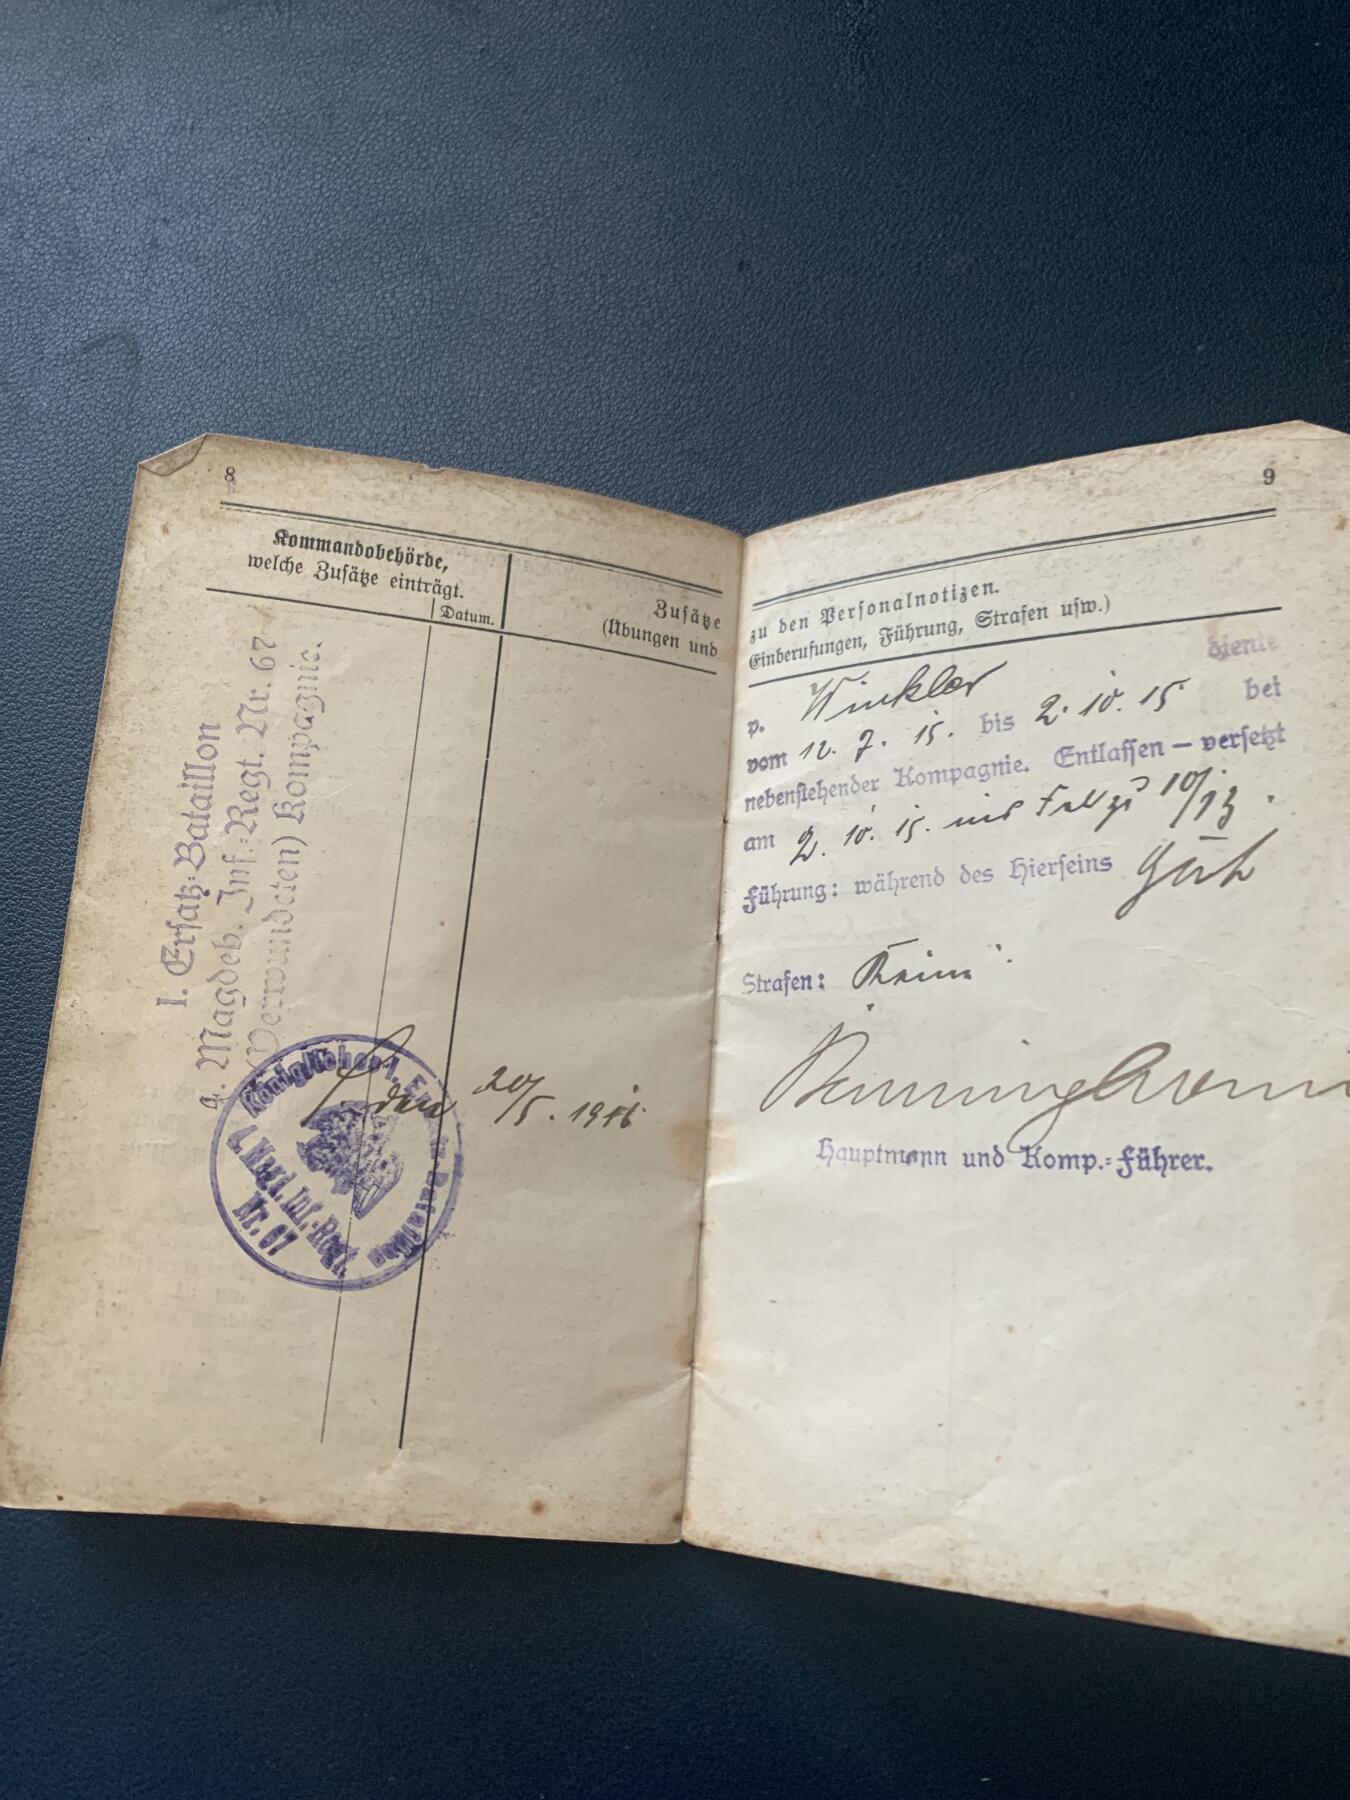 8
Kommandobehörde,
welche Zusätze einträgt.
Datum.
Zusätze
(Übungen und
I. Ersatz-Bataillon
4. Magdeb. Inf.-Regt. Nr. 67
(Verwundeten) Kompagnie.
den 20/5. 1916
Königliches I. Ersatz Bataillon
4. Magd. Inf.-Regt.
Nr. 67
9
zu den Personalnotizen.
Einberufungen, Führung, Strafen usw.)
p. Winkler diente
vom 12. 7. 15. bis 2. 10. 15 bei
nebenstehender Kompagnie. Entlassen – versetzt
am 2. 10. 15. ins Feld zu 10/13.
Führung: während des Hierseins Gut
Strafen: Keine
Hauptmann und Komp.-Führer.